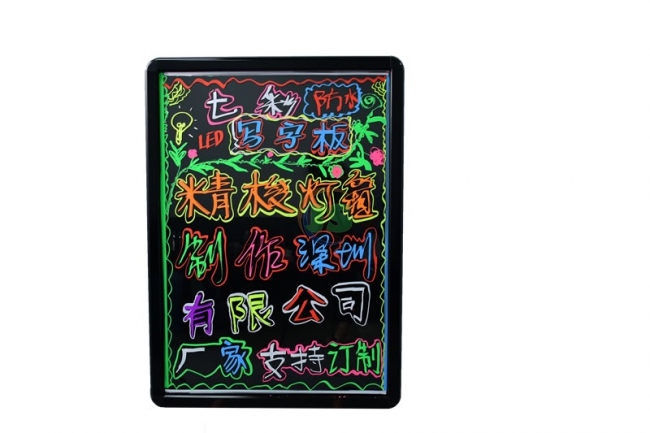 七彩防水
LED写字板
精梭灯箱
制作深圳
有限公司
厂家支持订制